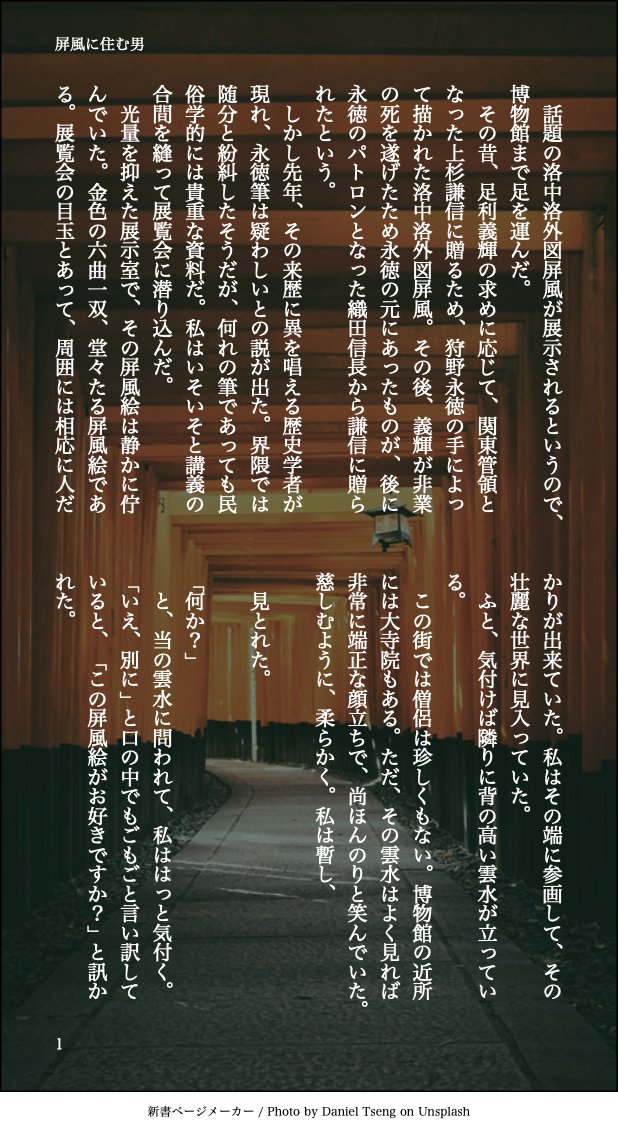 屏風に住む男
　話題の洛中洛外図屏風が展示されるというので、
博物館まで足を運んだ。
　その昔、足利義輝の求めに応じて、関東管領と
なった上杉謙信に贈るため、狩野永徳の手によっ
て描かれた洛中洛外図屏風。その後、義輝が非業
の死を遂げたため永徳の元にあったものが、後に
永徳のパトロンとなった織田信長から謙信に贈ら
れたという。
　しかし先年、その来歴に異を唱える歴史学者が
現れ、永徳筆は疑わしいとの説が出た。界隈では
随分と紛糾したそうだが、何れの筆であっても民
俗学的には貴重な資料だ。私はいそいそと講義の
合間を縫って展覧会に潜り込んだ。
　光量を抑えた展示室で、その屏風絵は静かに佇
んでいた。金色の六曲一双、堂々たる屏風絵であ
る。展覧会の目玉とあって、周囲には相応に人だ
かりが出来ていた。私はその端に参画して、その
壮麗な世界に見入っていた。
　ふと、気付けば隣りに背の高い雲水が立ってい
る。
　この街では僧侶は珍しくもない。博物館の近所
には大寺院もある。ただ、その雲水はよく見れば
非常に端正な顔立ちで、尚ほんのりと笑んでいた。
慈しむように、柔らかく。私は暫し、
　見とれた。
「何か？」
　と、当の雲水に問われて、私ははっと気付く。
「いえ、別に」と口の中でもごもごと言い訳して
いると、「この屏風絵がお好きですか？」と訊か
れた。
1
新書ページメーカー / Photo by Daniel Tseng on Unsplash